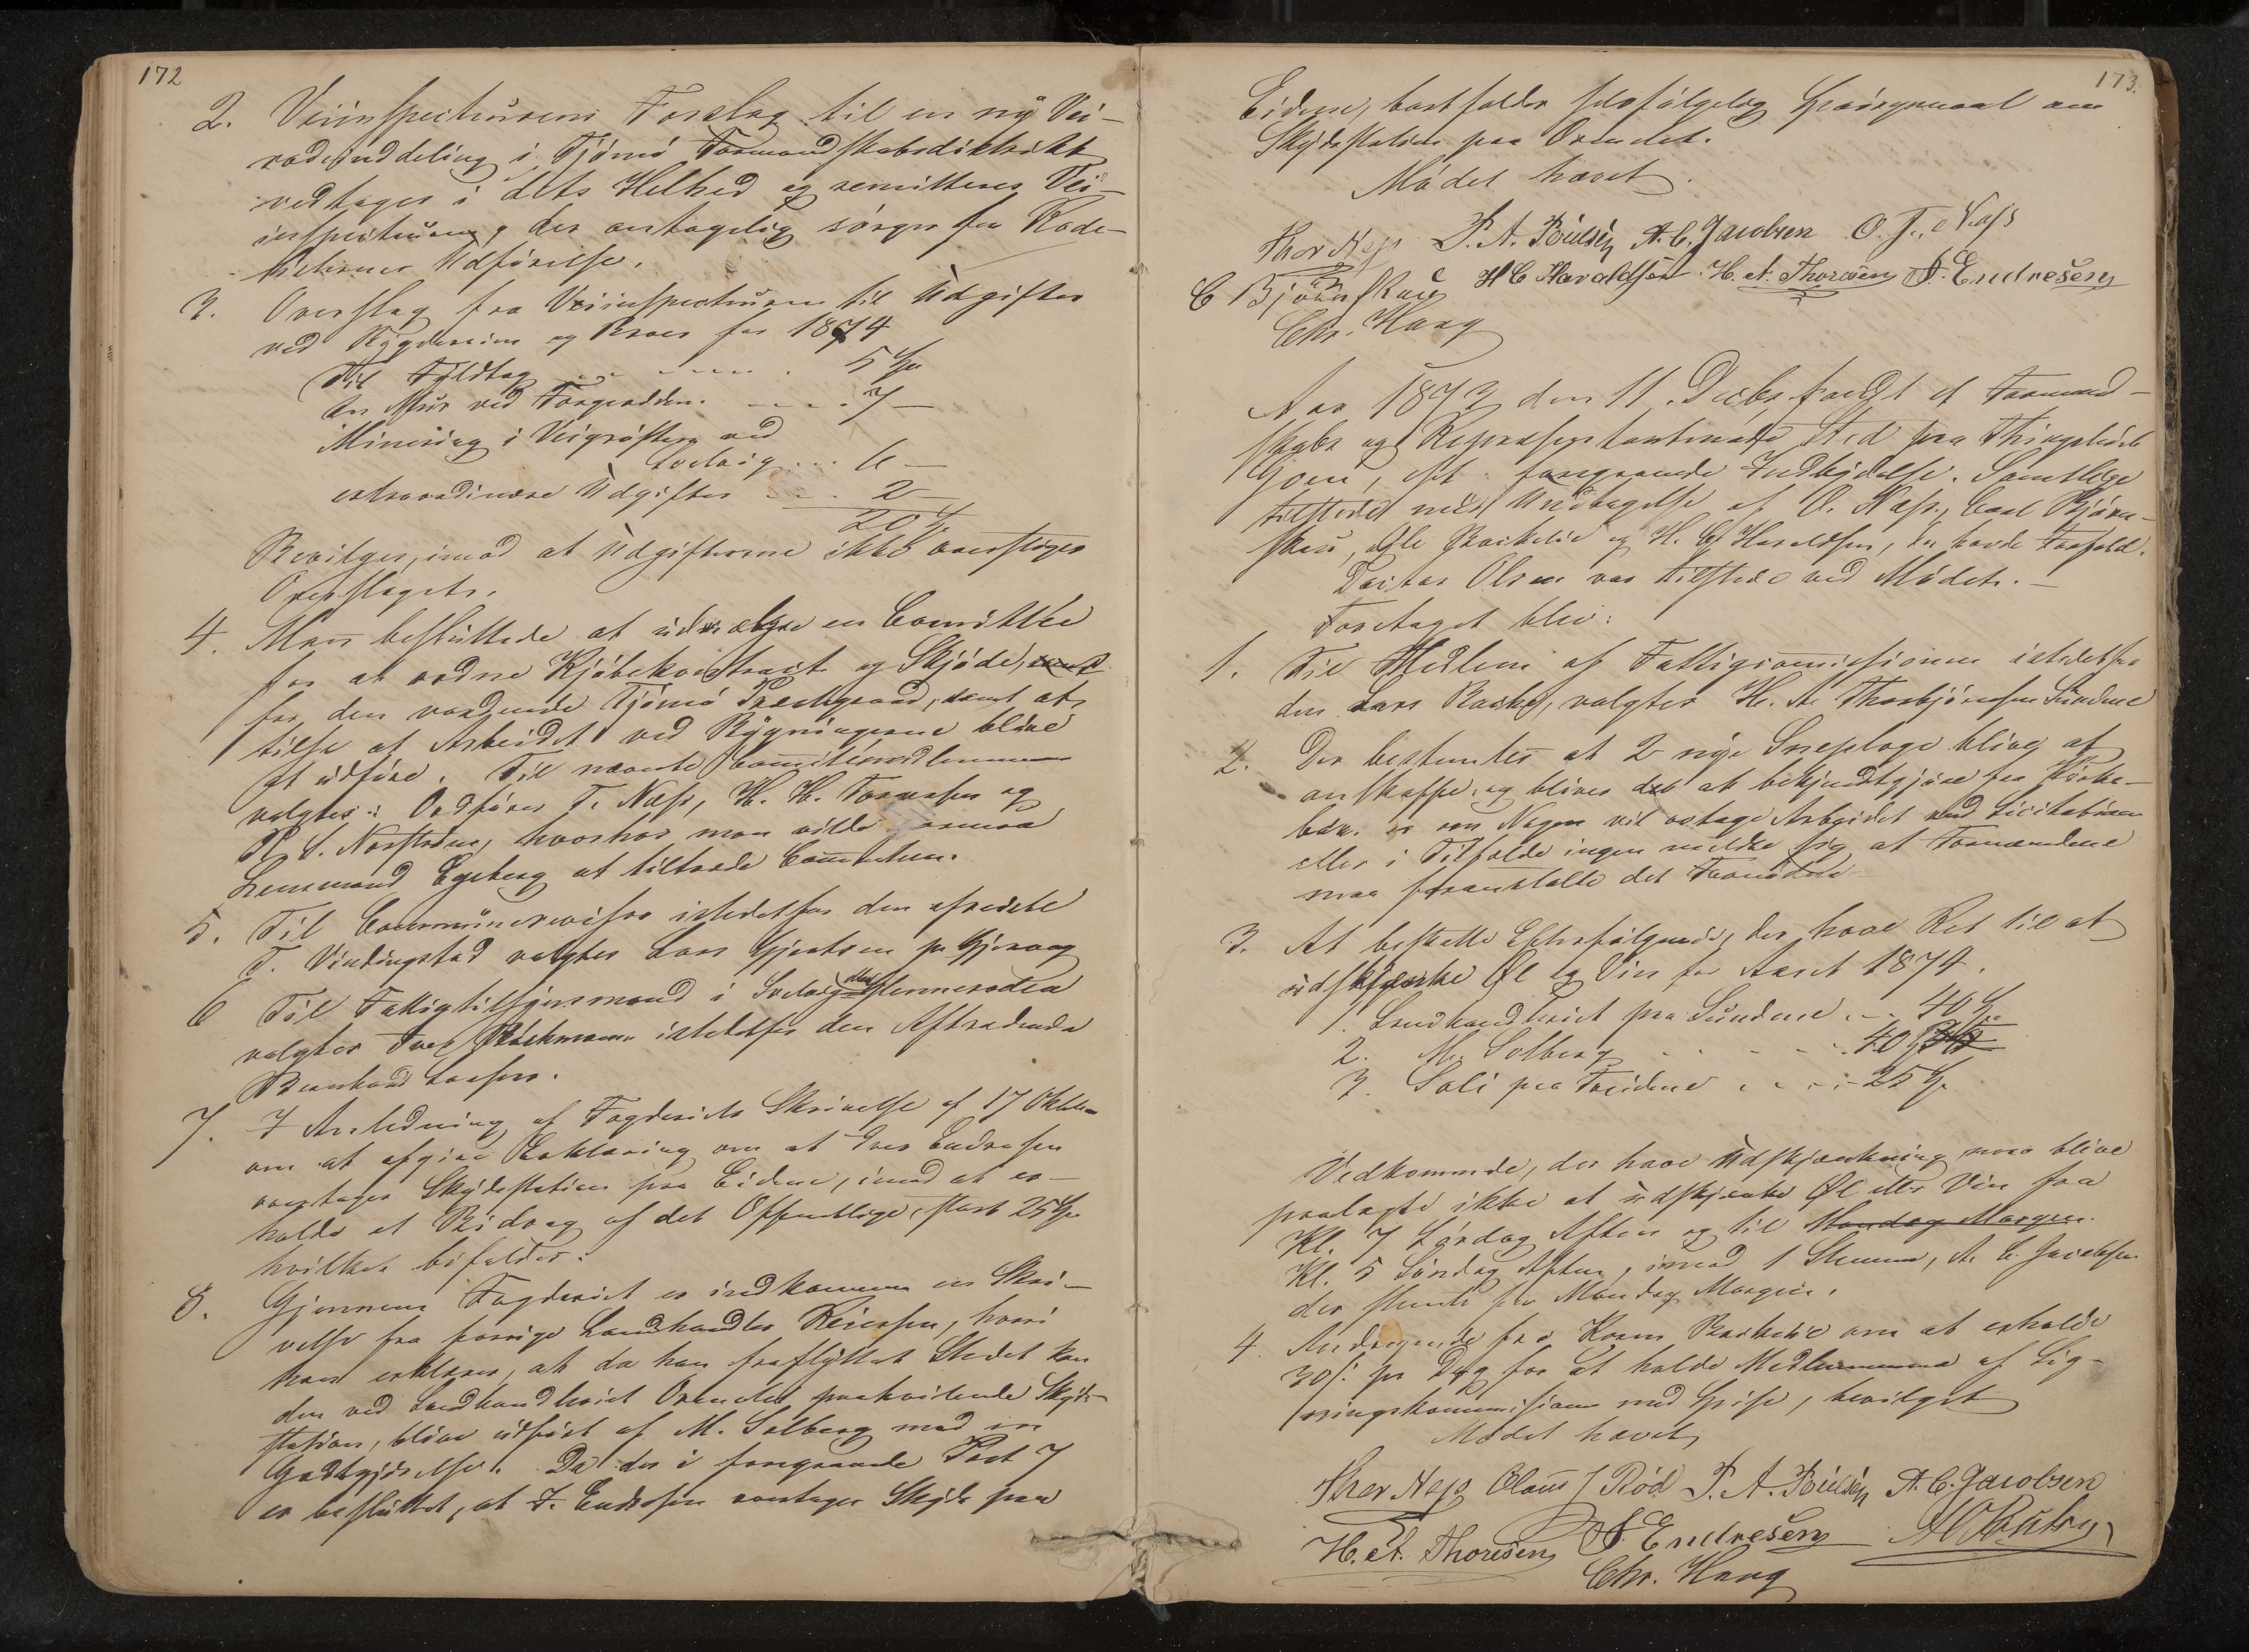 172
2. Veiinspecteurens Forslag til en ny Vei-
rodeinddeling i Tjømø Formandskabsdistrikt
vedtages i dets Helhed og remitteres Vei-
inspecteuren, der antagelig sørger for Rode-
listernes Udførelse.
3. Overslag fra Veiinspecteuren til Udgifter
ved Bygdeveie og Broer for 1874
Til Fyldtag 5 Spd
en Mur ved Fangerodden 7 —
Minering i Veigrøften ved
Solvig 6 —
extraordinære Udgifter 2 —
20 Spd
Bevilges, imod at Udgifterne ikke overstiger
Overslaget.
4. Man besluttede at udvælge en Comittee
for at ordne Kjøbekontract og Skjøde, samt
for den vordende Tjømø Præstegaard, samt at
tilse at Arbeidet ved Bygningerne blive
udføre. Til nævnte Comitémedlemmer
valgtes: Ordfører T. Næss, H. H. Formosen og
S. Nordstrøm, hvorhos man vilde formaa
Lensmand Egeberg at tiltræde Committeen.
5. Til Communerevisor istedetfor den afreiste
T. Vindingstad valgtes Lars Gjertsen pr Gjervaag
6 Til Fattigtilsynsmand i Solvig
valgtes Iver Bøckmann istedetfor den Aftrædende
Bernhard Larsen.
7. I Anledning af Fogderiets Skrivelse af 17 Oktober
om at afgive Erklæring om at Iver Endresen
overtager Skydsstation paa Eidene, imod at er-
holde et Bidrag af det Offentlige, stort 25 Spd
hvilket bifaldes.
8. Gjennem Fogderiet er indkommen en Skri-
velse fra forrige Landhandler Reiersen, hvori
han erklærer, at da han fraflyttet Stedet kan
den ved Landhandleriet Ormelet paahvilende Skyds-
station, blive udført af M. Solberg mod en
Godtgjørelse. Da der i foregaaende Post 7
er besluttet, at I. Endresen overtager Skyds paa
173.
Eidene, bortfalder selvfølgelig Spørgsmaal om
Skydsstation paa Ormelet.
Mødet hævet.
Thor Næss P. A. Poulsen A. C. Jacobsen O. T. Næss
C Bjørnskau H C Haraldsen H. A. Thoresen A. Endresen
Chr. Haug
Aar 1873 den 11. Decbr foregik et Formand-
skabs og Repræsentantmøde Sted paa Thinglokalet
Goen, eft. foregaaende Indbydelse. Samtlige
tilstede med Undtagelse af O. Næss, Carl Bjørn-
skau, Ole Bakkelie og H. C. Haraldsen, der havde Forfald.
Pastor Olsen var tilstede ved Mødet. —
Foretaget blev:
1. Til Medlem af Fattigcomissionen istedetfor
den Lars Bache, valgtes H. A. Thorbjørnsen Sundene
2. Der bestemtes at 2 nye Sneploge blive at
anskaffe, og bliver det at bekjendtgjøre fra Kirke-
bak. om Nogen vil overtage Arbeidet ved Licitation
eller i Tilfælde ingen melder sig at Formændene
maa foranstalte det Fornødne
3. At beskatte Efterfølgende, der have Ret til at
udskjænke Øl og Vin for Aaret 1874.
1. Landhandleriet paa Sundene 40 Spd
2. M. Solberg 40 Spd
3. Soli paa Treidene 25 Spd
Vedkommende, der have Udskjænkning maa blive
paalagte ikke at udskjænke Øl eller Vin fra
Kl. 7 Lørdag Aften og til Mandag Morgen.
Kl. 5 Søndag Aften, imod 1 Stemme, A. C. Jacobsen
der stemte for Mandag Morgen.
4. Andragende fra Karen Bakkelie om at erholde
30 s. pr Dag for at holde Medlemmerne af Lig-
ningskommissionen med Spise, bevilget
Mødet hævet
Thor Næss Claus J Rød P. A. Poulsen A. C. Jacobsen
H. A. Thoresen A. Endresen
Chr. Haug